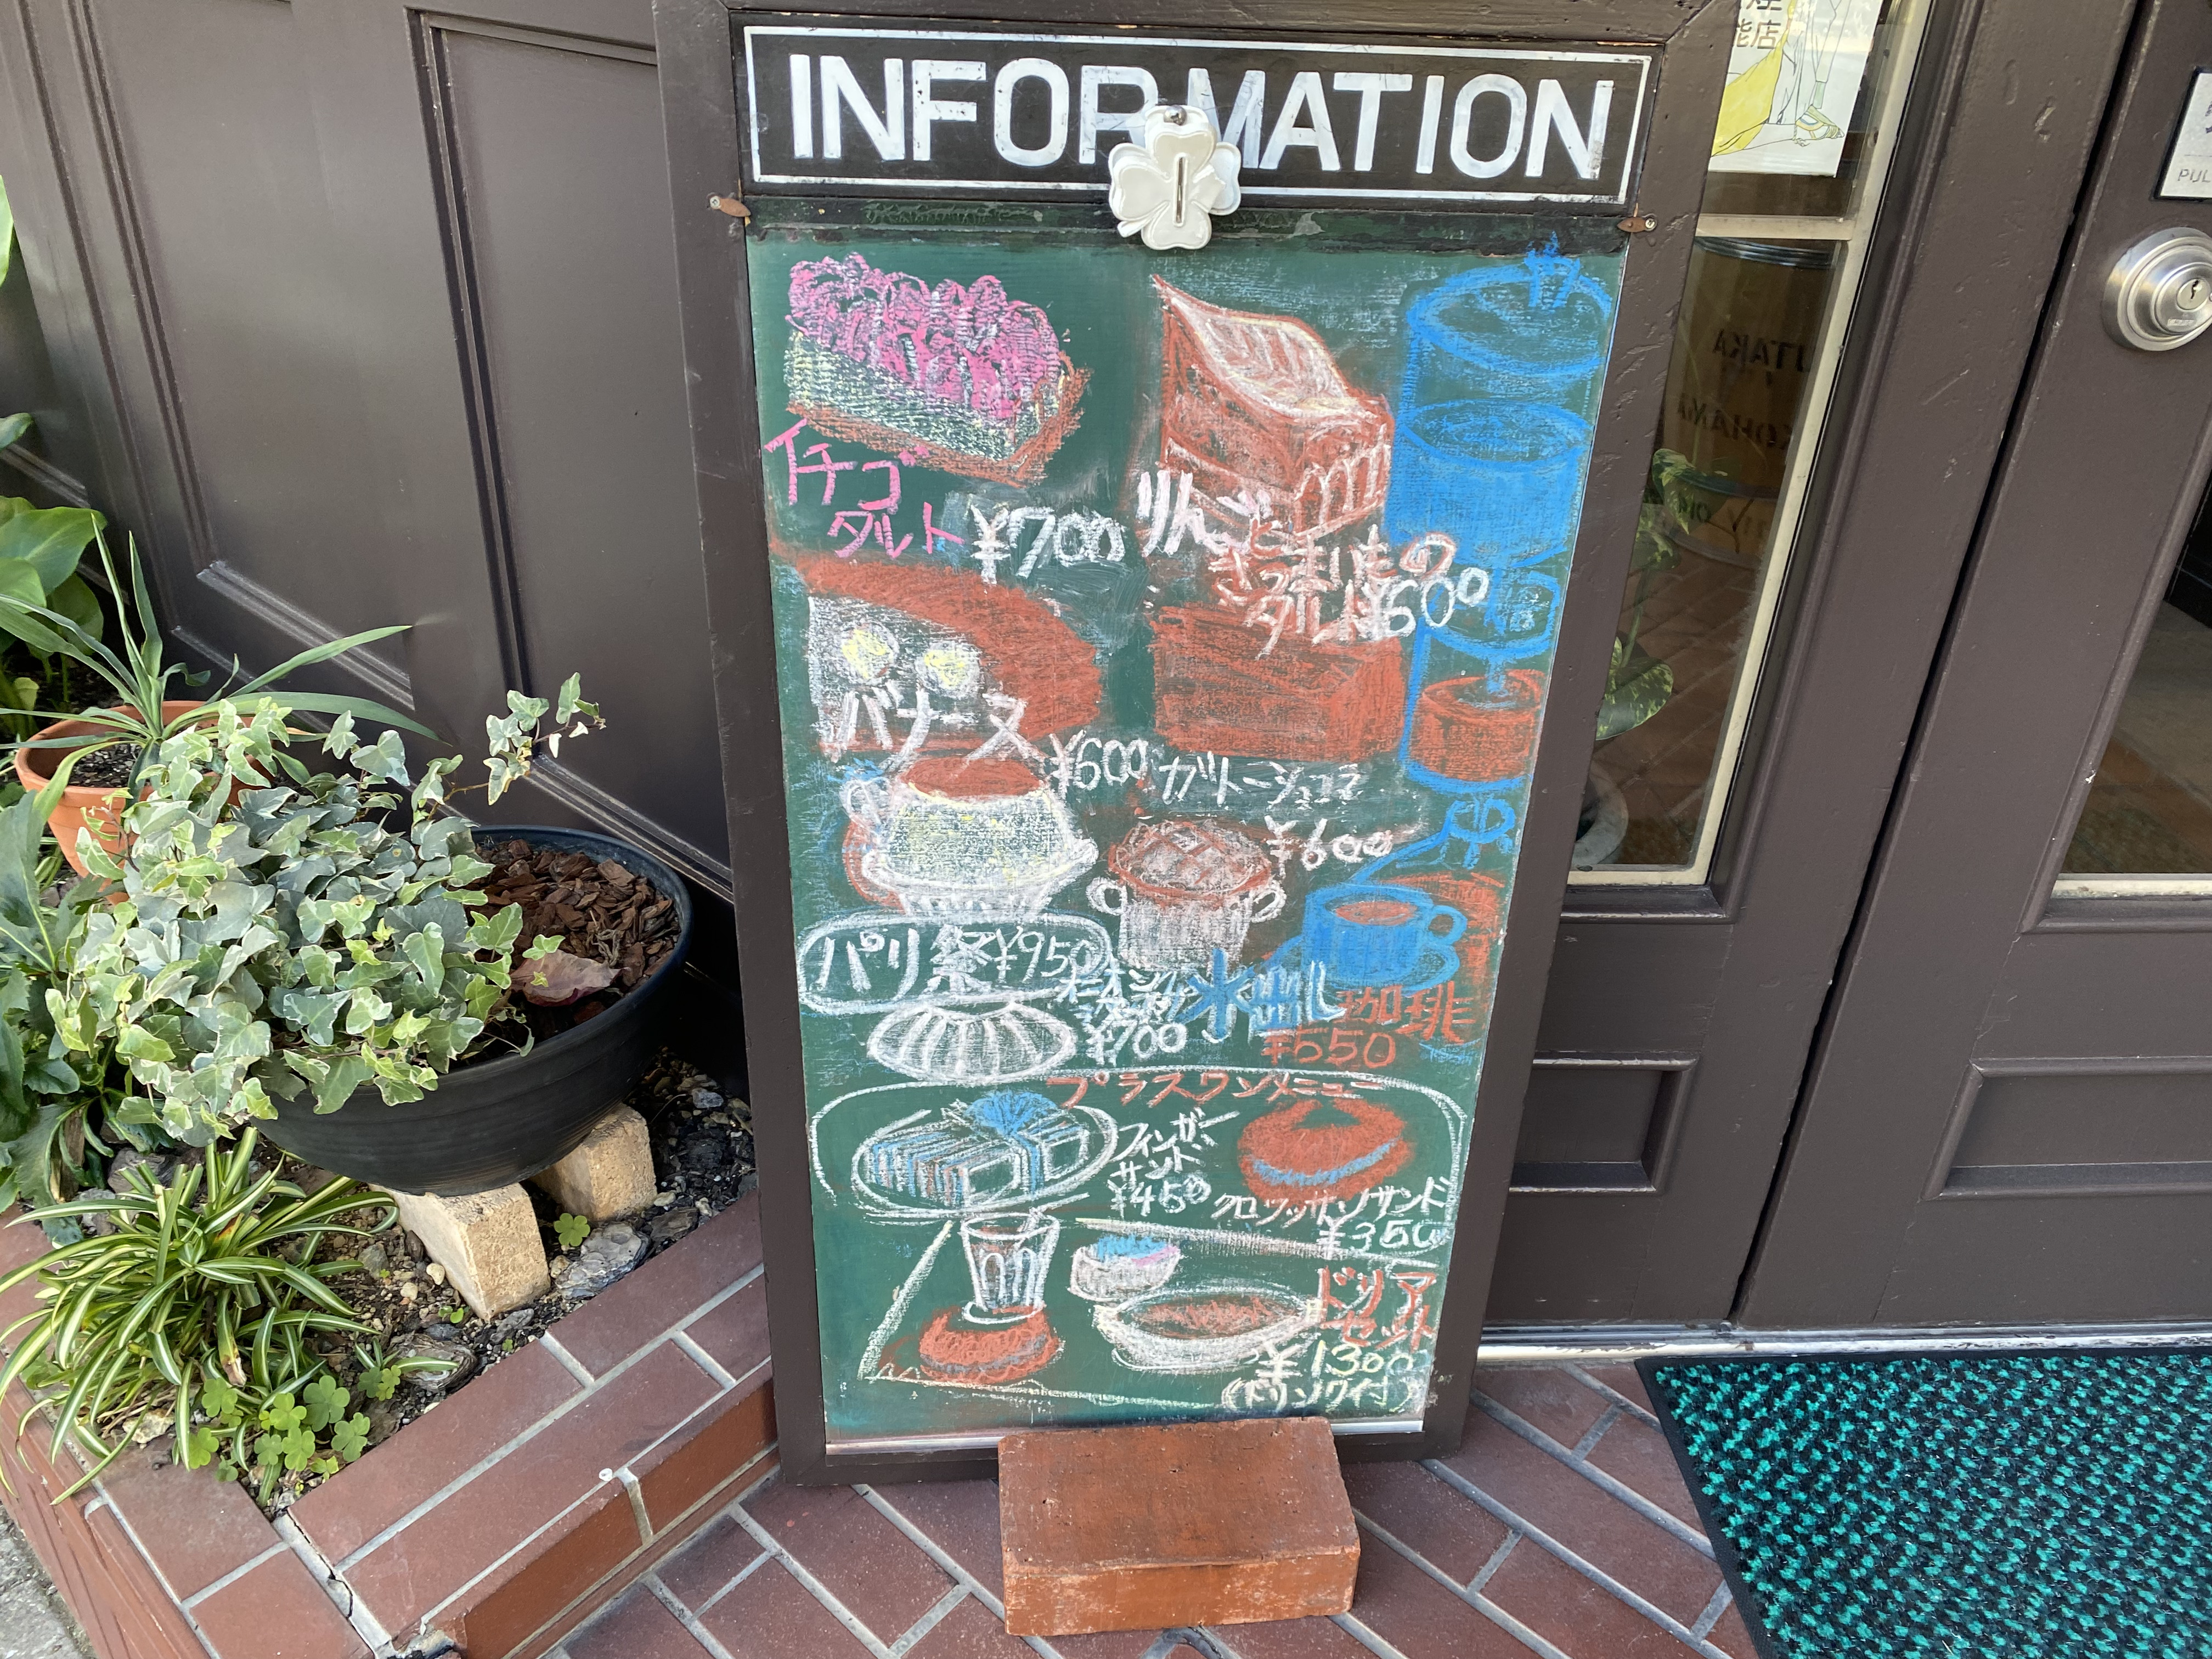 INFORMATION
イチゴ
タルト
¥700
りんごと
さつまいもの
タルト ¥600
バナーヌ
¥600
ガトーショコラ
¥600
パリ祭 ¥950
オニオングラタン
¥700
水出し珈琲
¥550
プラスワンメニュー
フィンガー
サンド
¥450
クロワッサンサンド
¥350
ドリア
セット
¥1300
(ドリンク付)
能店
PUL